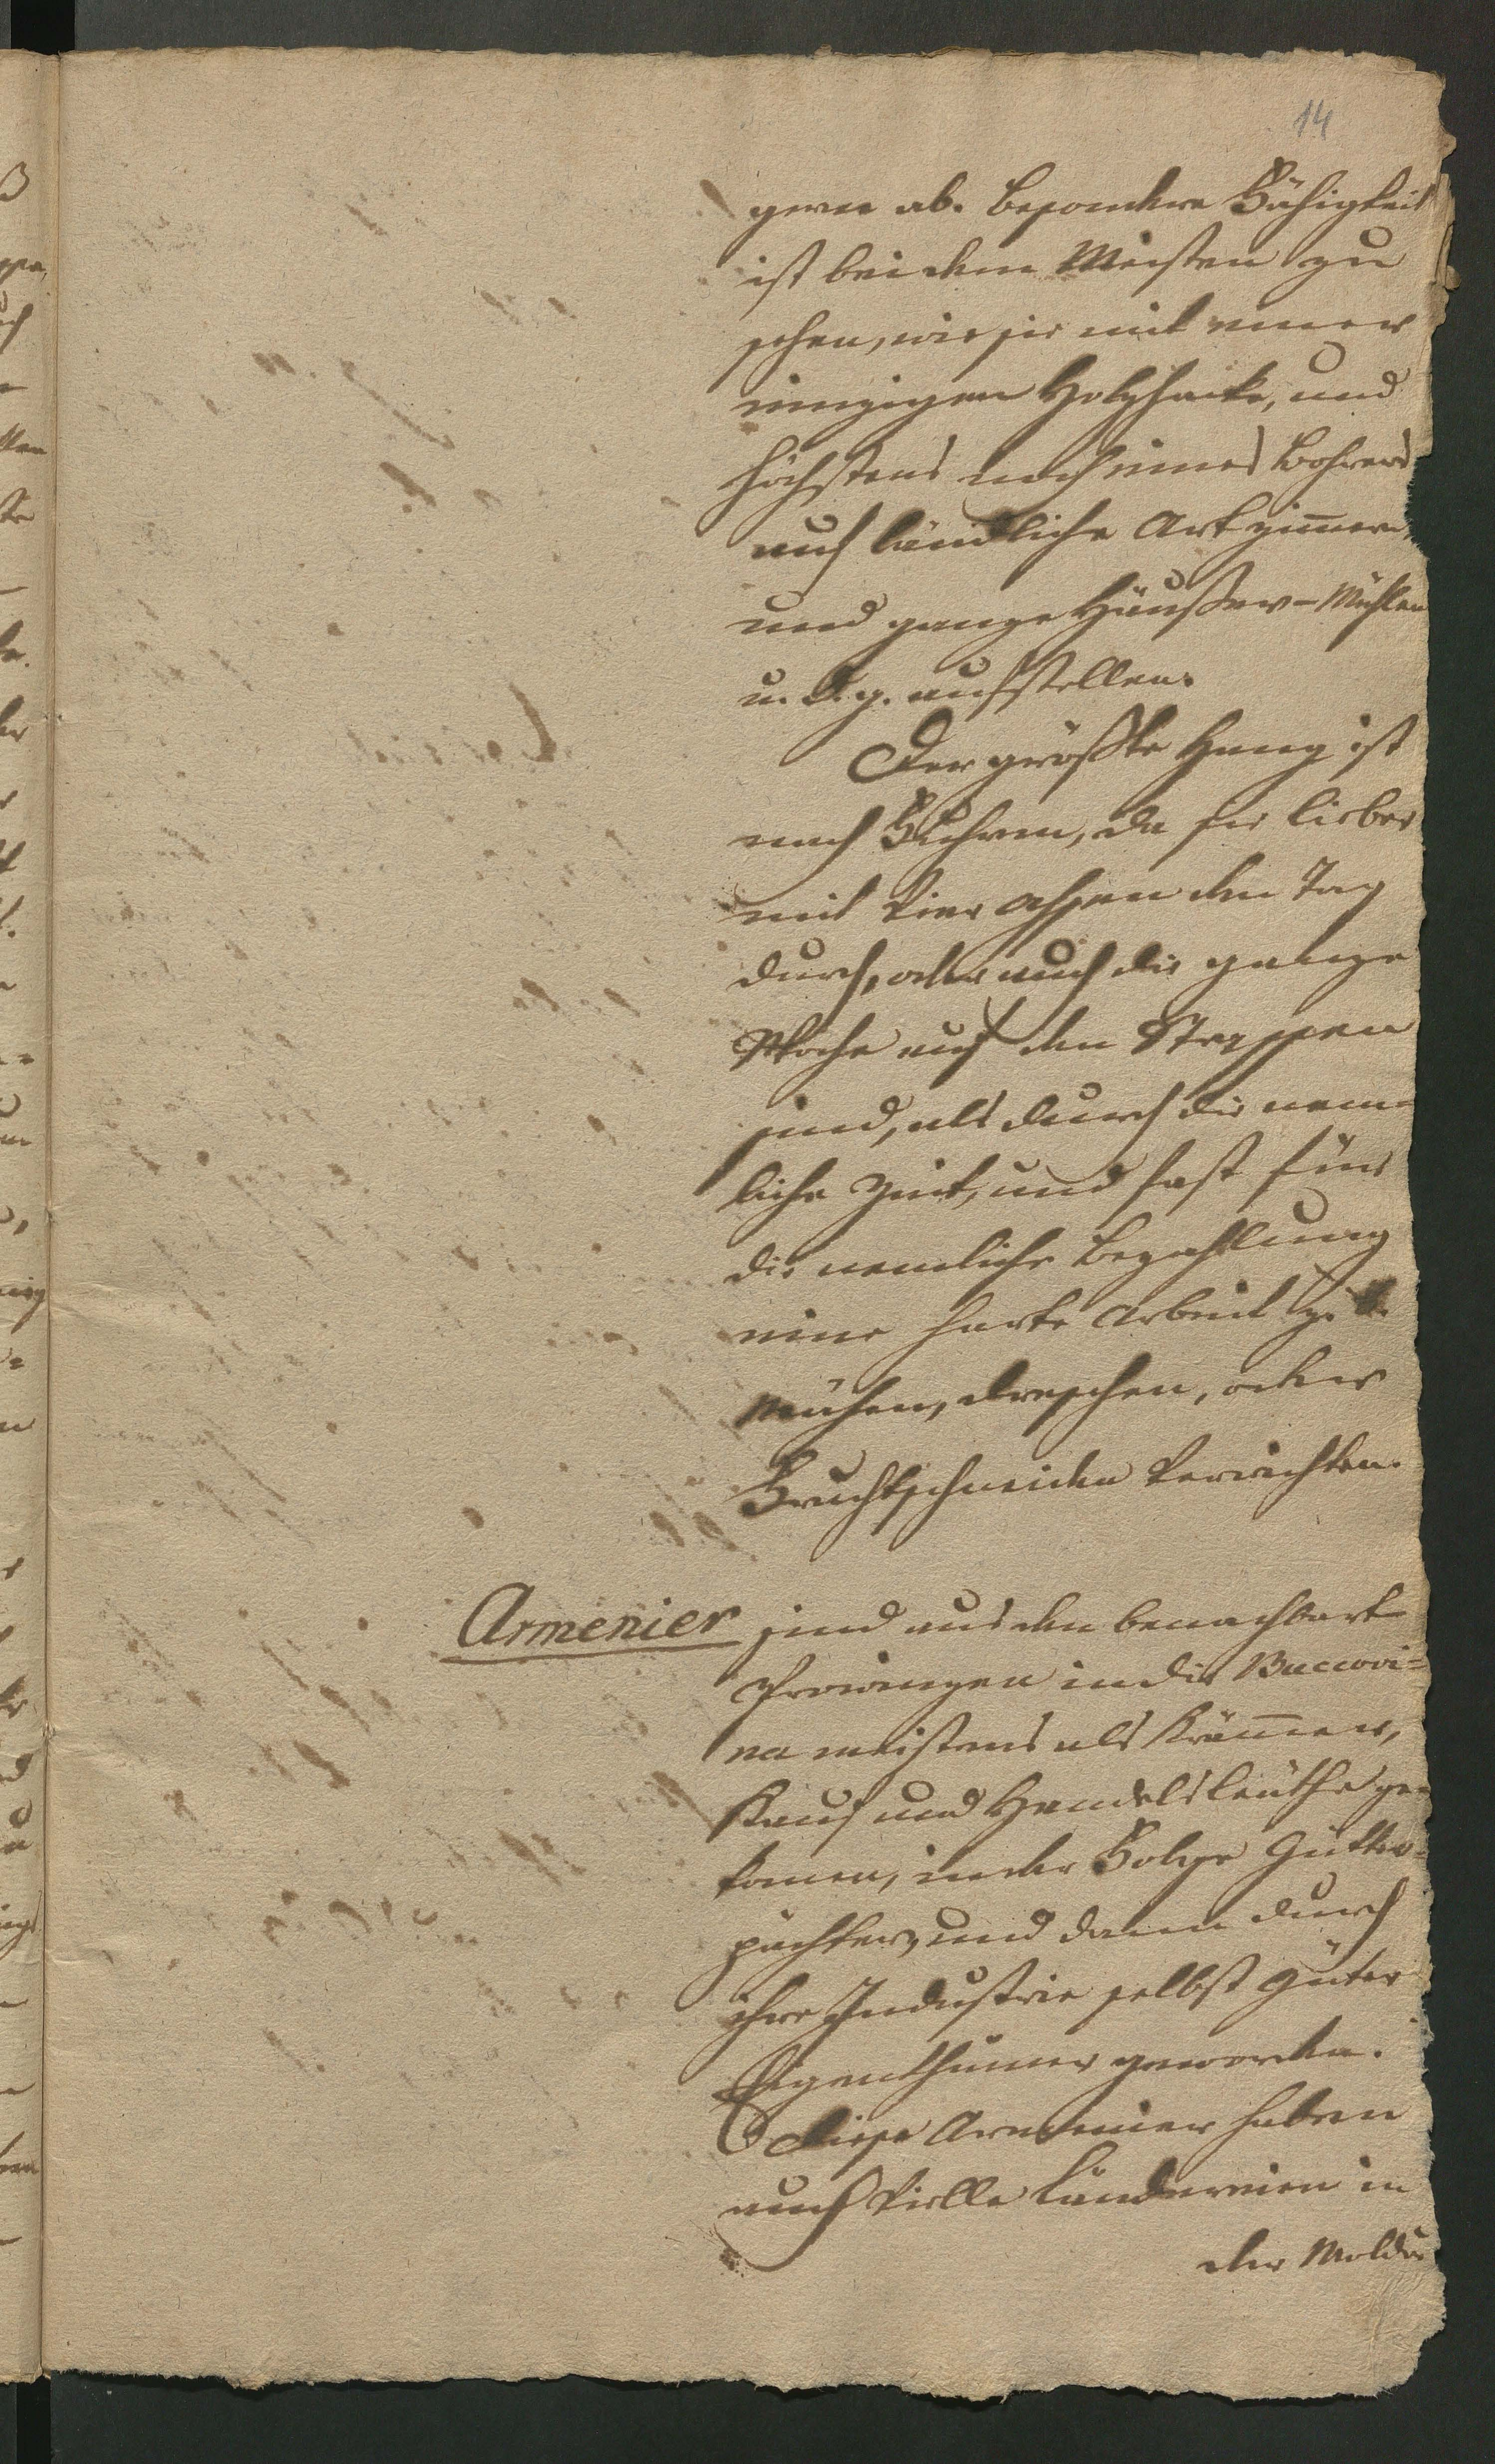 14
gerne ab. besondere Fähigkeit
ist bei dem Meisten zu
sehen, wie sie mit einer
einzigen Holzhacke, und
höchstens noch eines Bohrers
auf ländliche Art zim̄ern,
und ganze Häußer-Mühlen
u. d. g. aufstellen.
Der größte Hang ist
nach Fuhren, da sie lieber
mit vier Ochsen den Tag
durch, oder auch die ganze
Woche auf den Strassen
sind, als durch die nem-
liche Zeit, und fast für
die nemliche Bezahlung
eine harte Arbeit z. B.
Mähen, dreschen, oder
Fruchtschneiden verrichten.
Armenier sind aus den benachbart
Provinzen in die Buccovi=
na meistens als Kräm̄er,
Kauf und Handelsleüthe ge=
kom̄en, in der Folge Gütter=
pächter, und dann durch
ihre Industrie selbst Güter
Eigenthümer geworden.
Diese Armenier haben
auch vielle Ländereien in
der Moldau